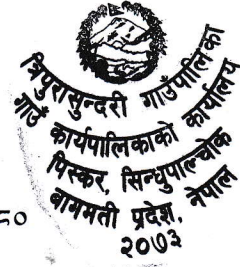 त्रिपुरासुन्दरी गाउँपालिका
गाउँ कार्यपालिकाको कार्यालय
पिस्कर, सिन्धुपाल्चोक
बागमती प्रदेश, नेपाल
२०७३
८०